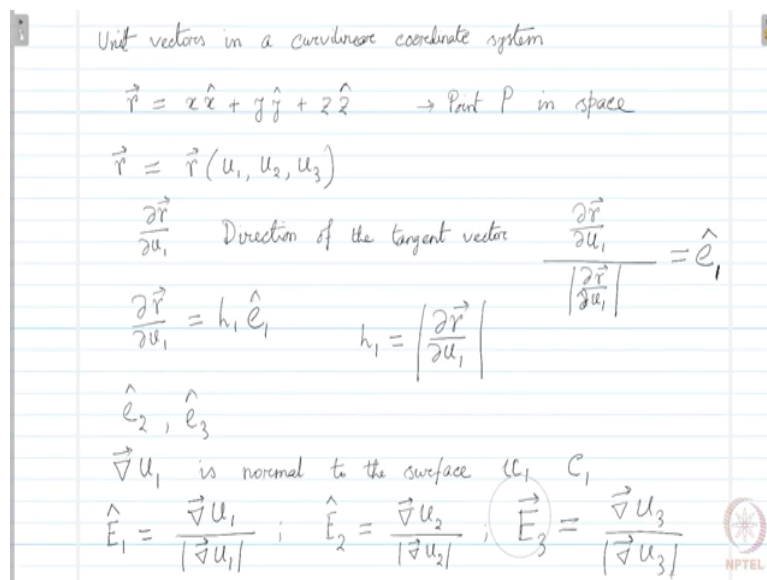 Unit vectors in a curvilinear coordinate system
r⃗ = x x̂ + y ŷ + z ẑ → Point P in space
r⃗ = r⃗ (u₁, u₂, u₃)
∂r⃗/∂u₁ Direction of the tangent vector (∂r⃗/∂u₁)/|∂r⃗/∂u₁| = ê₁
∂r⃗/∂u₁ = h₁ ê₁ h₁ = |∂r⃗/∂u₁|
ê₂, ê₃
∇⃗u₁ is normal to the surface C₁
Ê₁ = ∇⃗u₁/|∇⃗u₁| ; Ê₂ = ∇⃗u₂/|∇⃗u₂| ; E⃗₃ = ∇⃗u₃/|∇⃗u₃|
NPTEL